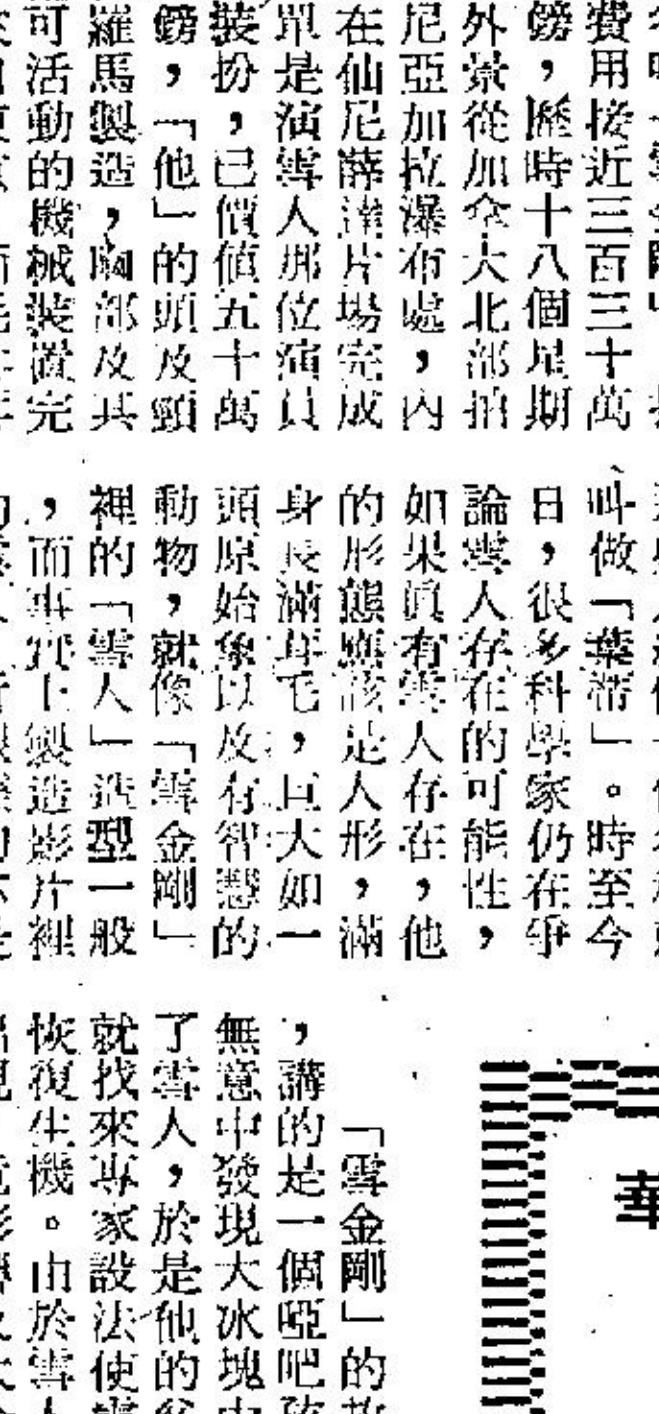 費用接近三百三十萬
鎊，歷時十八個星期
外景從加拿大北部拍
尼亞加拉瀑布處，內
在仙尼薛達片場完成
單是演雪人那位演員
裝扮，已價值五十萬
鎊，「他」的頭及頸
羅馬製造，胸部及其
可活動的機械裝置完
叫做「葉蒂」。時至今
日，很多科學家仍在爭
論雪人存在的可能性，
如果眞有雪人存在，他
的形態應該是人形，滿
身長滿年毛，巨大如一
頭原始象以及有智慧的
動物，就像「雪金剛」
裡的「雪人」造型一般
，而事實上製造影片裡
華
「雪金剛」的
，講的是一個啞吧孩
無意中發現大冰塊中
了雪人，於是他的爸
就找來專家設法使雪
恢復生機。由於雪人